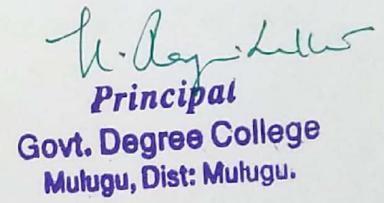 Principal
Govt. Degree College
Mulugu, Dist: Mulugu.